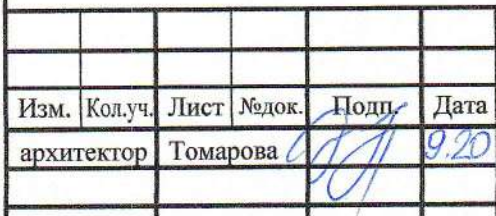 Изм. Кол.уч. Лист №док. Подп. Дата
архитектор Томарова 9.20